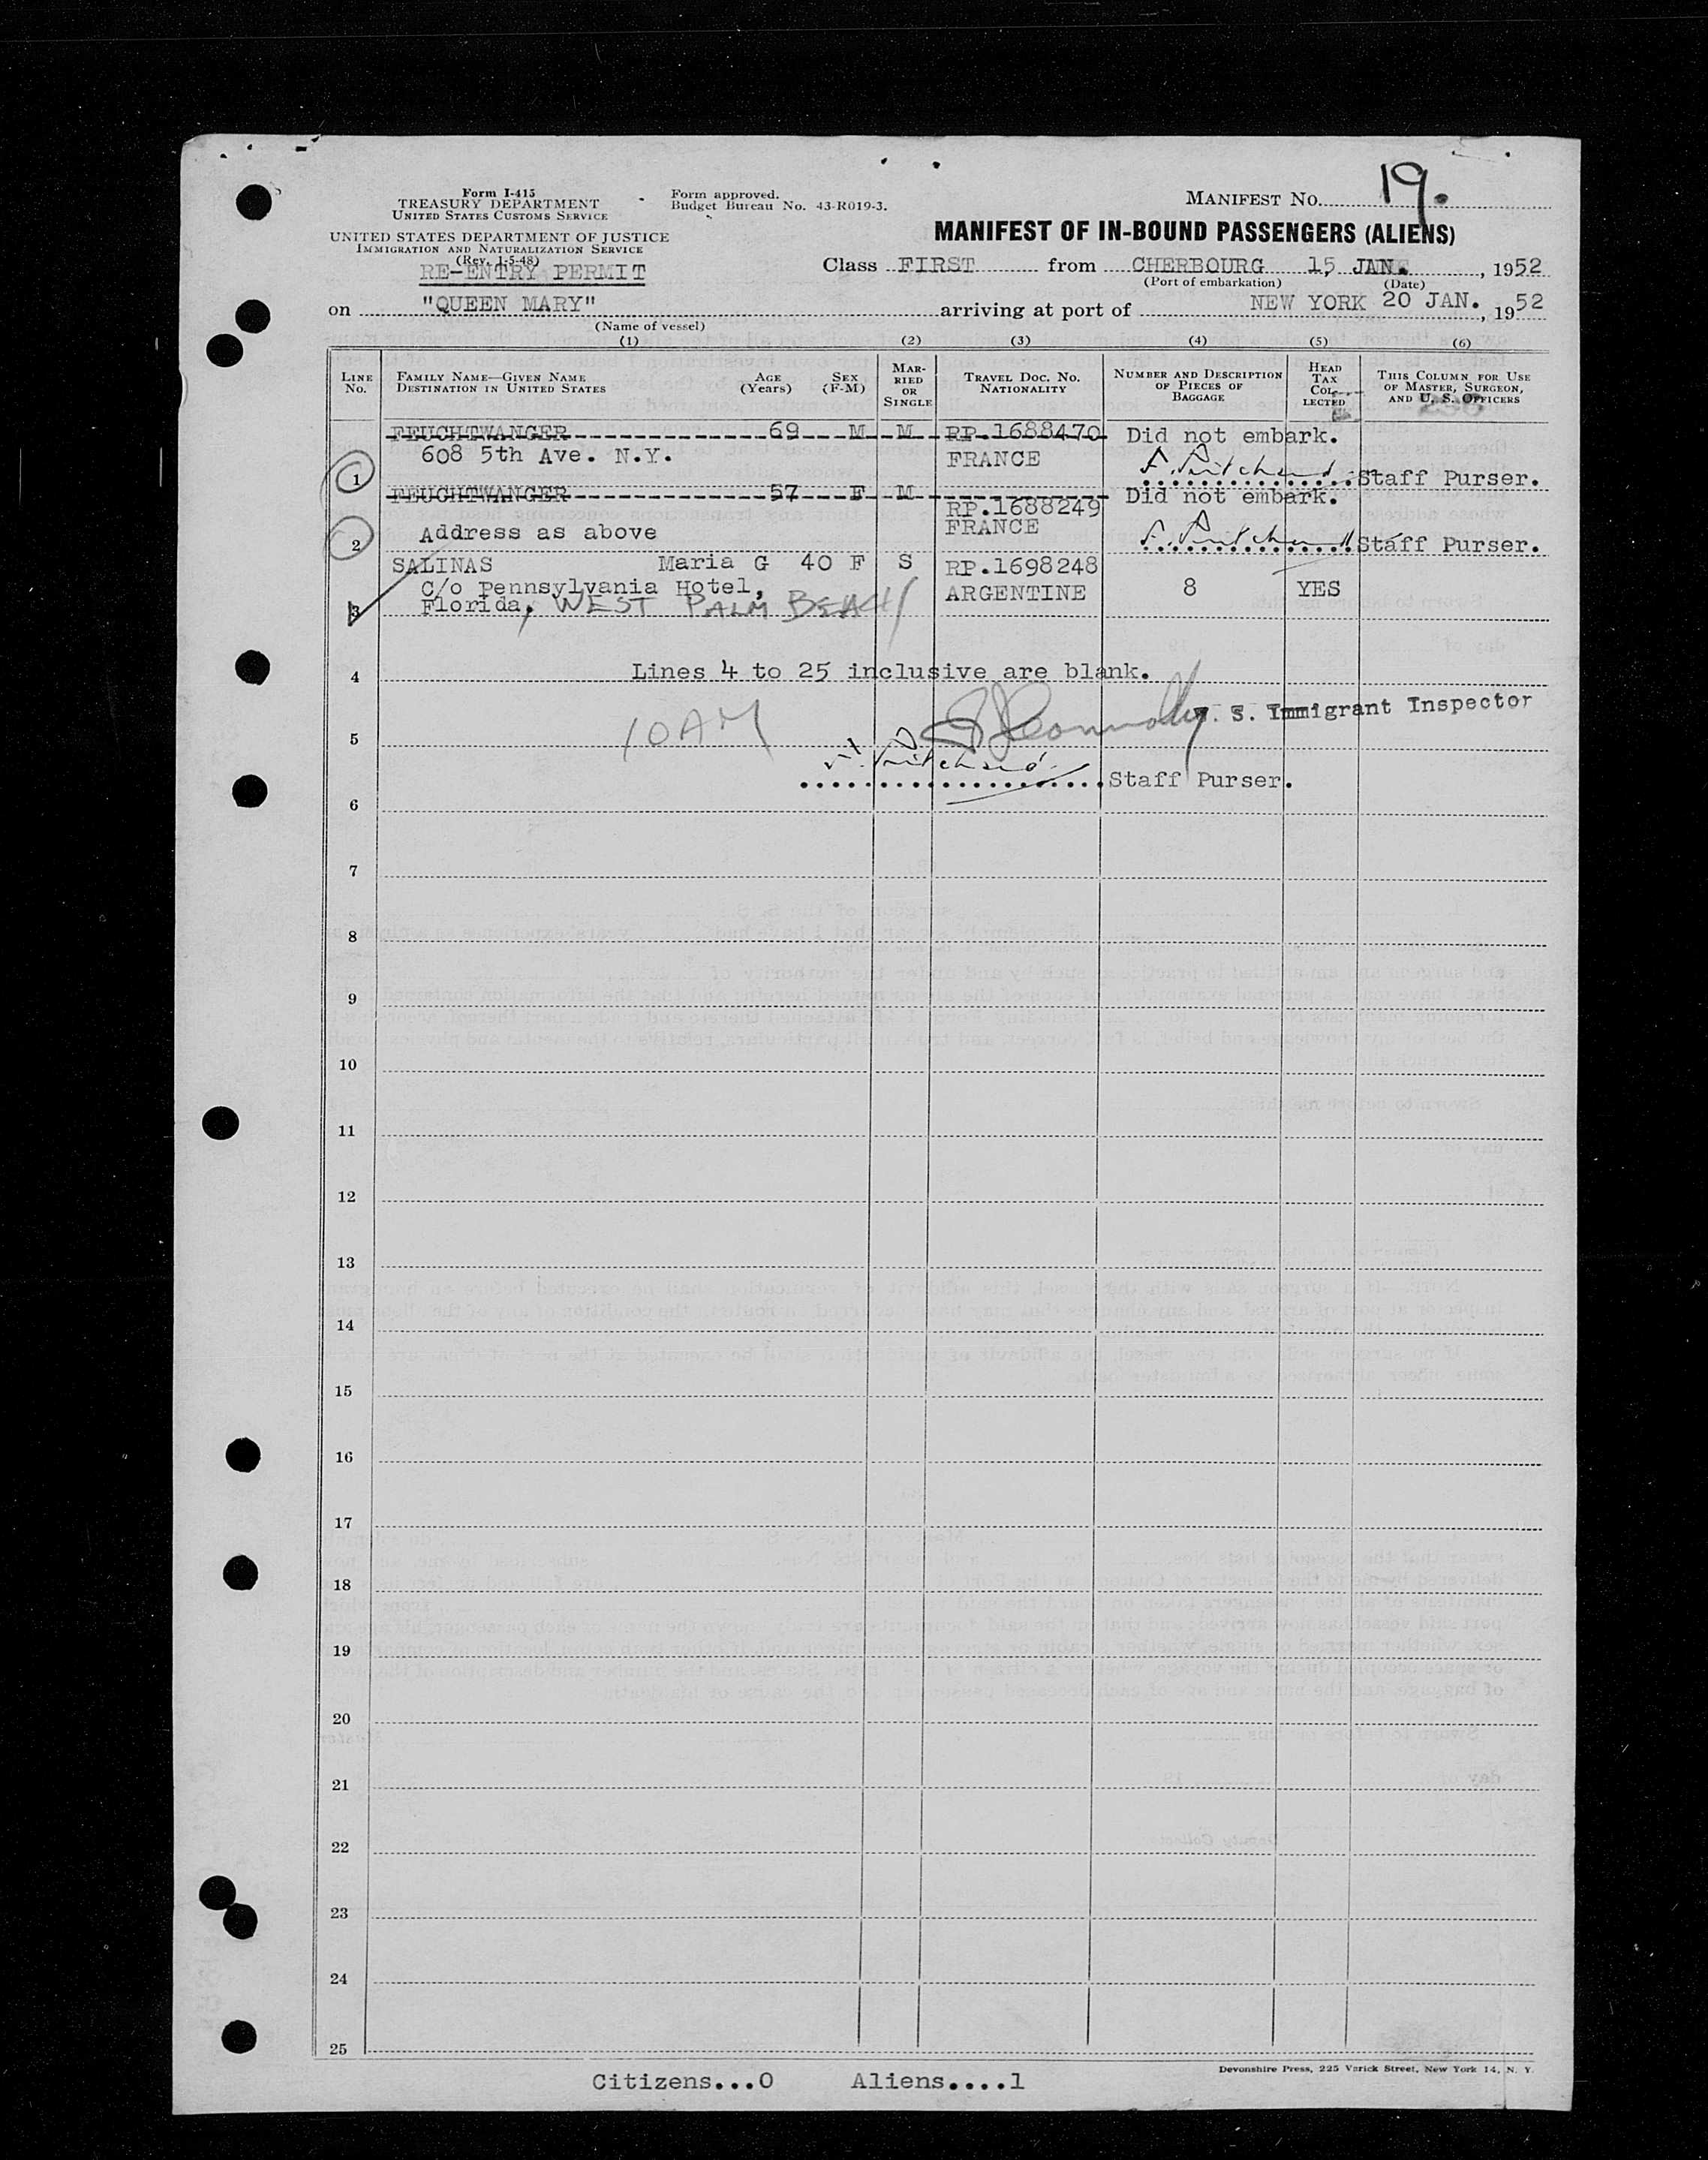 Form I-415
TREASURY DEPARTMENT
UNITED STATES CUSTOMS SERVICE
UNITED STATES DEPARTMENT OF JUSTICE
IMMIGRATION AND NATURALIZATION SERVICE
(Rev. 1-5-48)
RE-ENTRY PERMIT
Form approved.
Budget Bureau No. 43-R019-3.
MANIFEST No. 19.
MANIFEST OF IN-BOUND PASSENGERS (ALIENS)
Class FIRST from CHERBOURG 15 JAN. , 1952
(Port of embarkation) (Date)
on "QUEEN MARY" arriving at port of NEW YORK 20 JAN. , 1952
(Name of vessel)
(1) (2) (3) (4) (5) (6)
LINE No. FAMILY NAME—GIVEN NAME DESTINATION IN UNITED STATES AGE (Years) SEX (F-M) MARRIED OR SINGLE TRAVEL DOC. NO. NATIONALITY NUMBER AND DESCRIPTION OF PIECES OF BAGGAGE HEAD TAX COLLECTED THIS COLUMN FOR USE OF MASTER, SURGEON, AND U. S. OFFICERS
FEUCHTWANGER 69 M M RP.1688470 Did not embark.
608 5th Ave. N.Y. FRANCE
1 Staff Purser.
FEUCHTWANGER 57 F M Did not embark.
RP.1688249
FRANCE
2 Address as above Staff Purser.
SALINAS Maria G 40 F S RP.1698248
C/o Pennsylvania Hotel, ARGENTINE 8 YES
3 Florida, WEST PALM BEACH
4 Lines 4 to 25 inclusive are blank.
U. S. Immigrant Inspector
10 AM
5
Staff Purser.
6
7
8
9
10
11
12
13
14
15
16
17
18
19
20
21
22
23
24
25
Devonshire Press, 225 Varick Street, New York 14, N. Y.
Citizens...0 Aliens....1